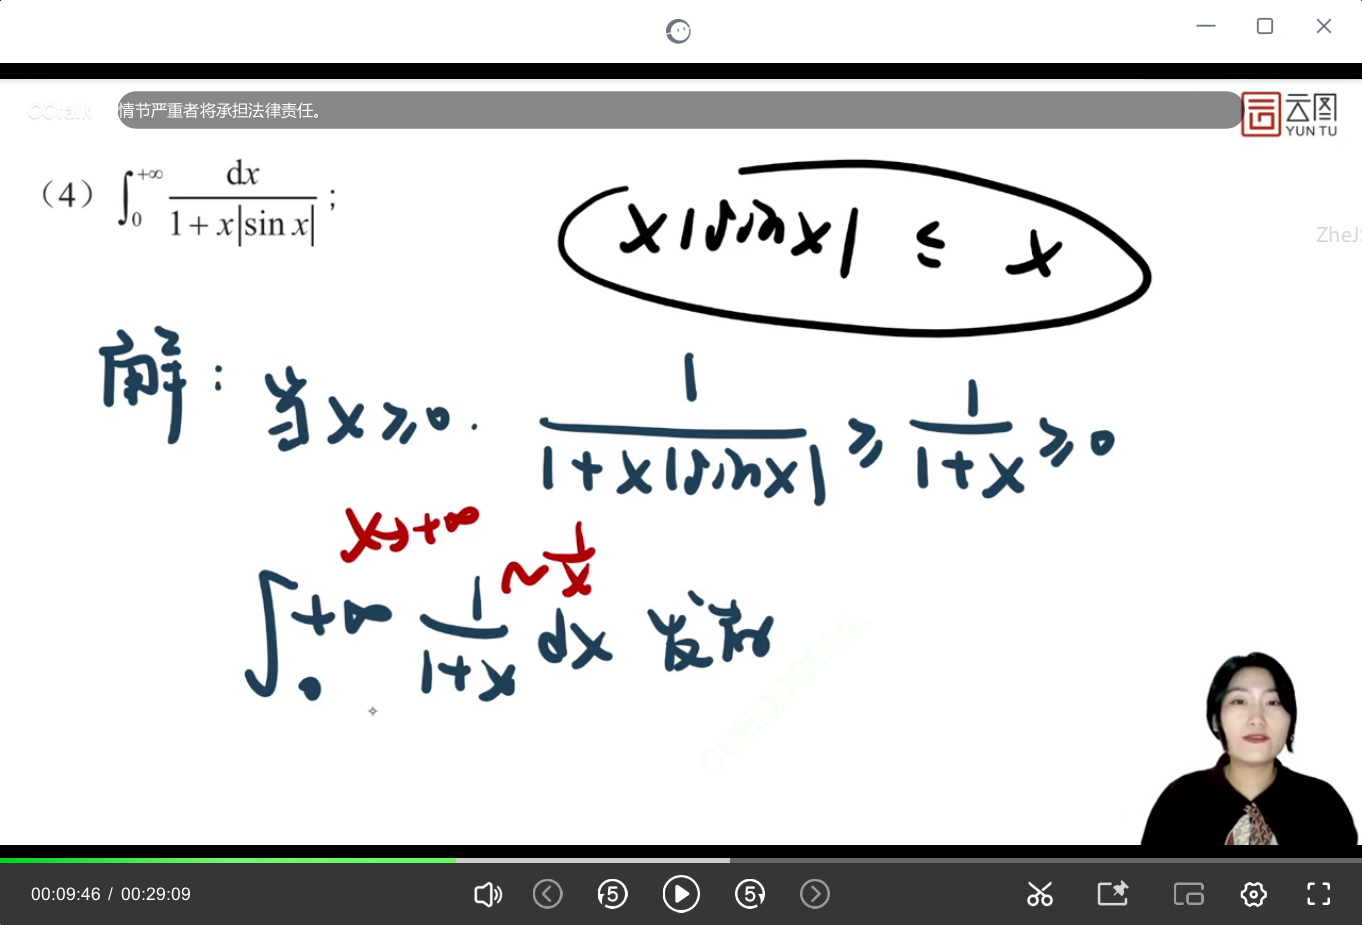 CCtalk 情节严重者将承担法律责任。
云图
YUN TU
(4) ∫₀^{+∞} dx / (1 + x|sin x|) ;
x|sinx| ≤ x
ZheJS
解: 当 x ≥ 0. 1 / (1+x|sinx|) ≥ 1 / (1+x) ≥ 0
x→+∞ ~ 1/x
∫₀^{+∞} 1 / (1+x) dx 发散
CUEDDSOUL
00:09:46 / 00:29:09
5 5